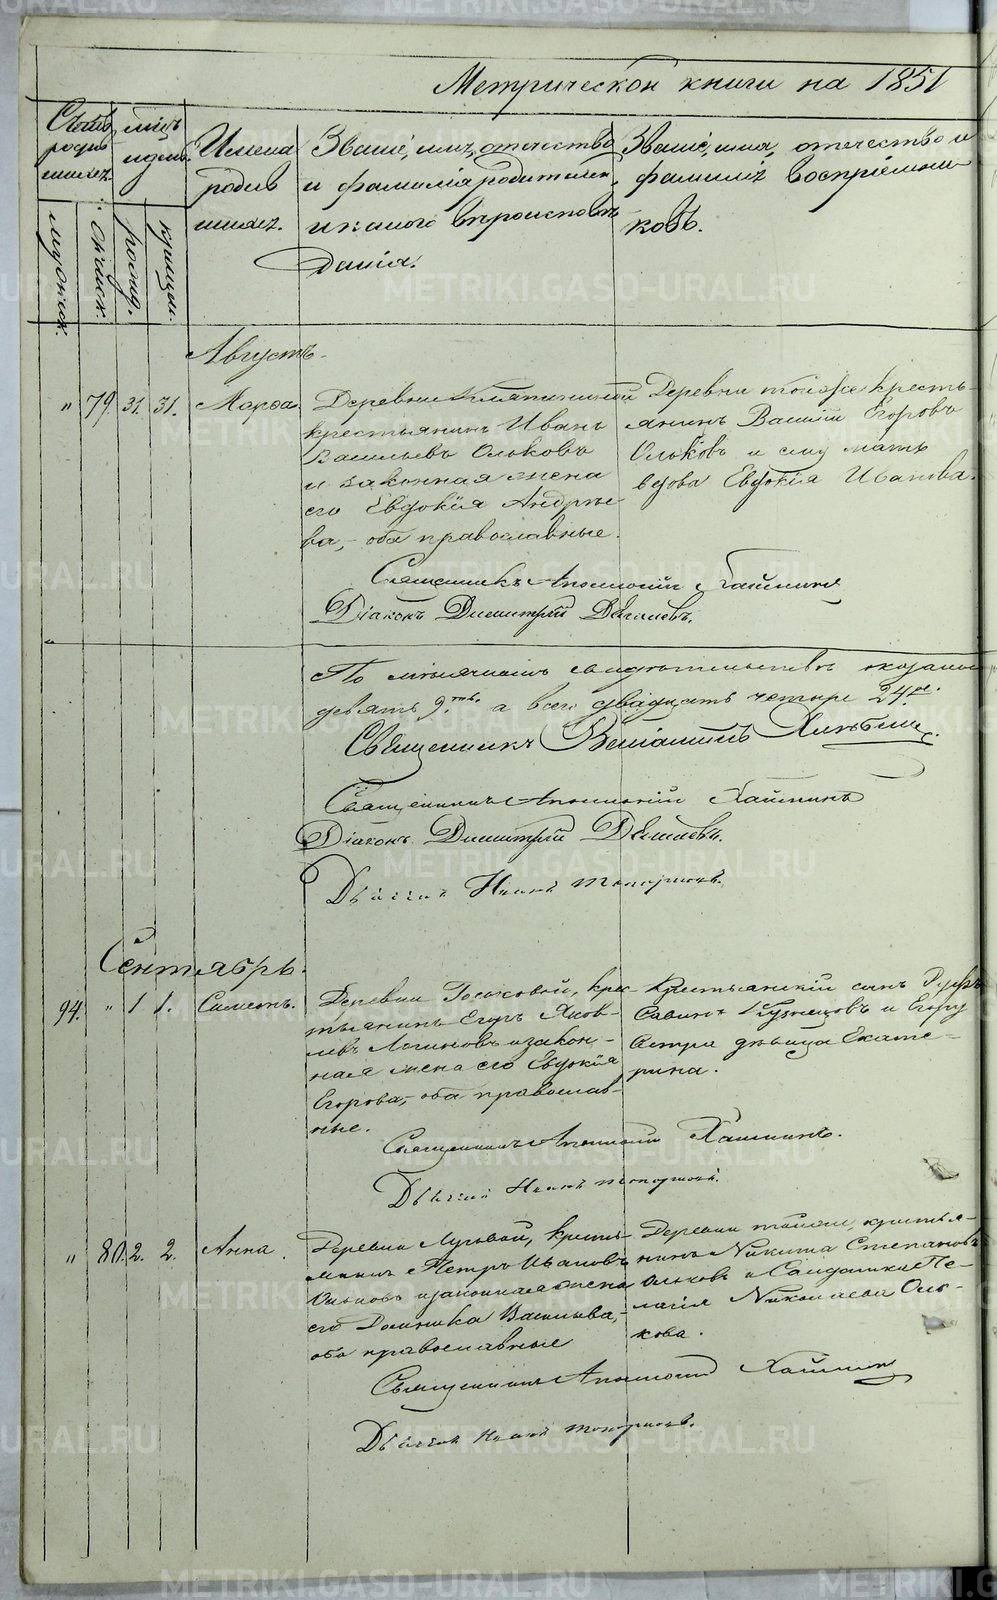 Метрической книги на 1851
Счетъ
родив
шихся.
мѣсц.
и день.
Имена
родив
шихся.
Званіе, имя, отечество
и фамилія родителей,
и какого вѣроисповѣ
данія.
Званіе, имя, отечество и
фамилія воспріемни
ковъ.
мужеск.
женск.
рожд.
крещен.
Августъ.
" 79. 31. 31. Марѳа.
Деревни
крестьянинъ Иванъ
Васильевъ Ольковъ
и законная жена
его Евдокія Андрѣе
ва, оба православные.
Деревни тойже кресть-
янинъ Василій Егоровъ
Ольковъ и ему мать
вдова Евдокія Иванова.
Священникъ Аполлоній Хайминъ
Діаконъ Димитрій
По свидѣтельствѣ оказалось
девять 9.ть а всего двадцать четыре 24.ре.
Священникъ Веніаминъ
Священникъ Аполлоній Хайминъ
Діаконъ Димитрій
Дьячекъ Иванъ Топорковъ.
Сентябрь.
94. " 1 1. Симеонъ.
Деревни кре-
стьянинъ Егоръ Яков-
левъ Логиновъ и закон-
ная жена его Евдокія
Егорова, оба православ-
ные.
Крестьянскій сынъ
Савинъ Кузнецовъ и Егору
сестра дѣвица Екате-
рина.
Священникъ Аполлоній Хайминъ.
Дьячекъ Иванъ Топорковъ.
" 80. 2. 2. Анна.
Деревни Луговой, кресть-
янинъ Петръ Ивановъ
Ольковъ и законная жена
его Домника Васильева,
оба православные
Деревни тойже, крестья-
нинъ Никита Степановъ
Ольковъ и Солдатка Пе-
лагія Николаева Оль-
кова.
Священникъ Аполлоній Хайминъ
Дьячекъ Иванъ Топорковъ.
METRIKI.GASO-URAL.RU